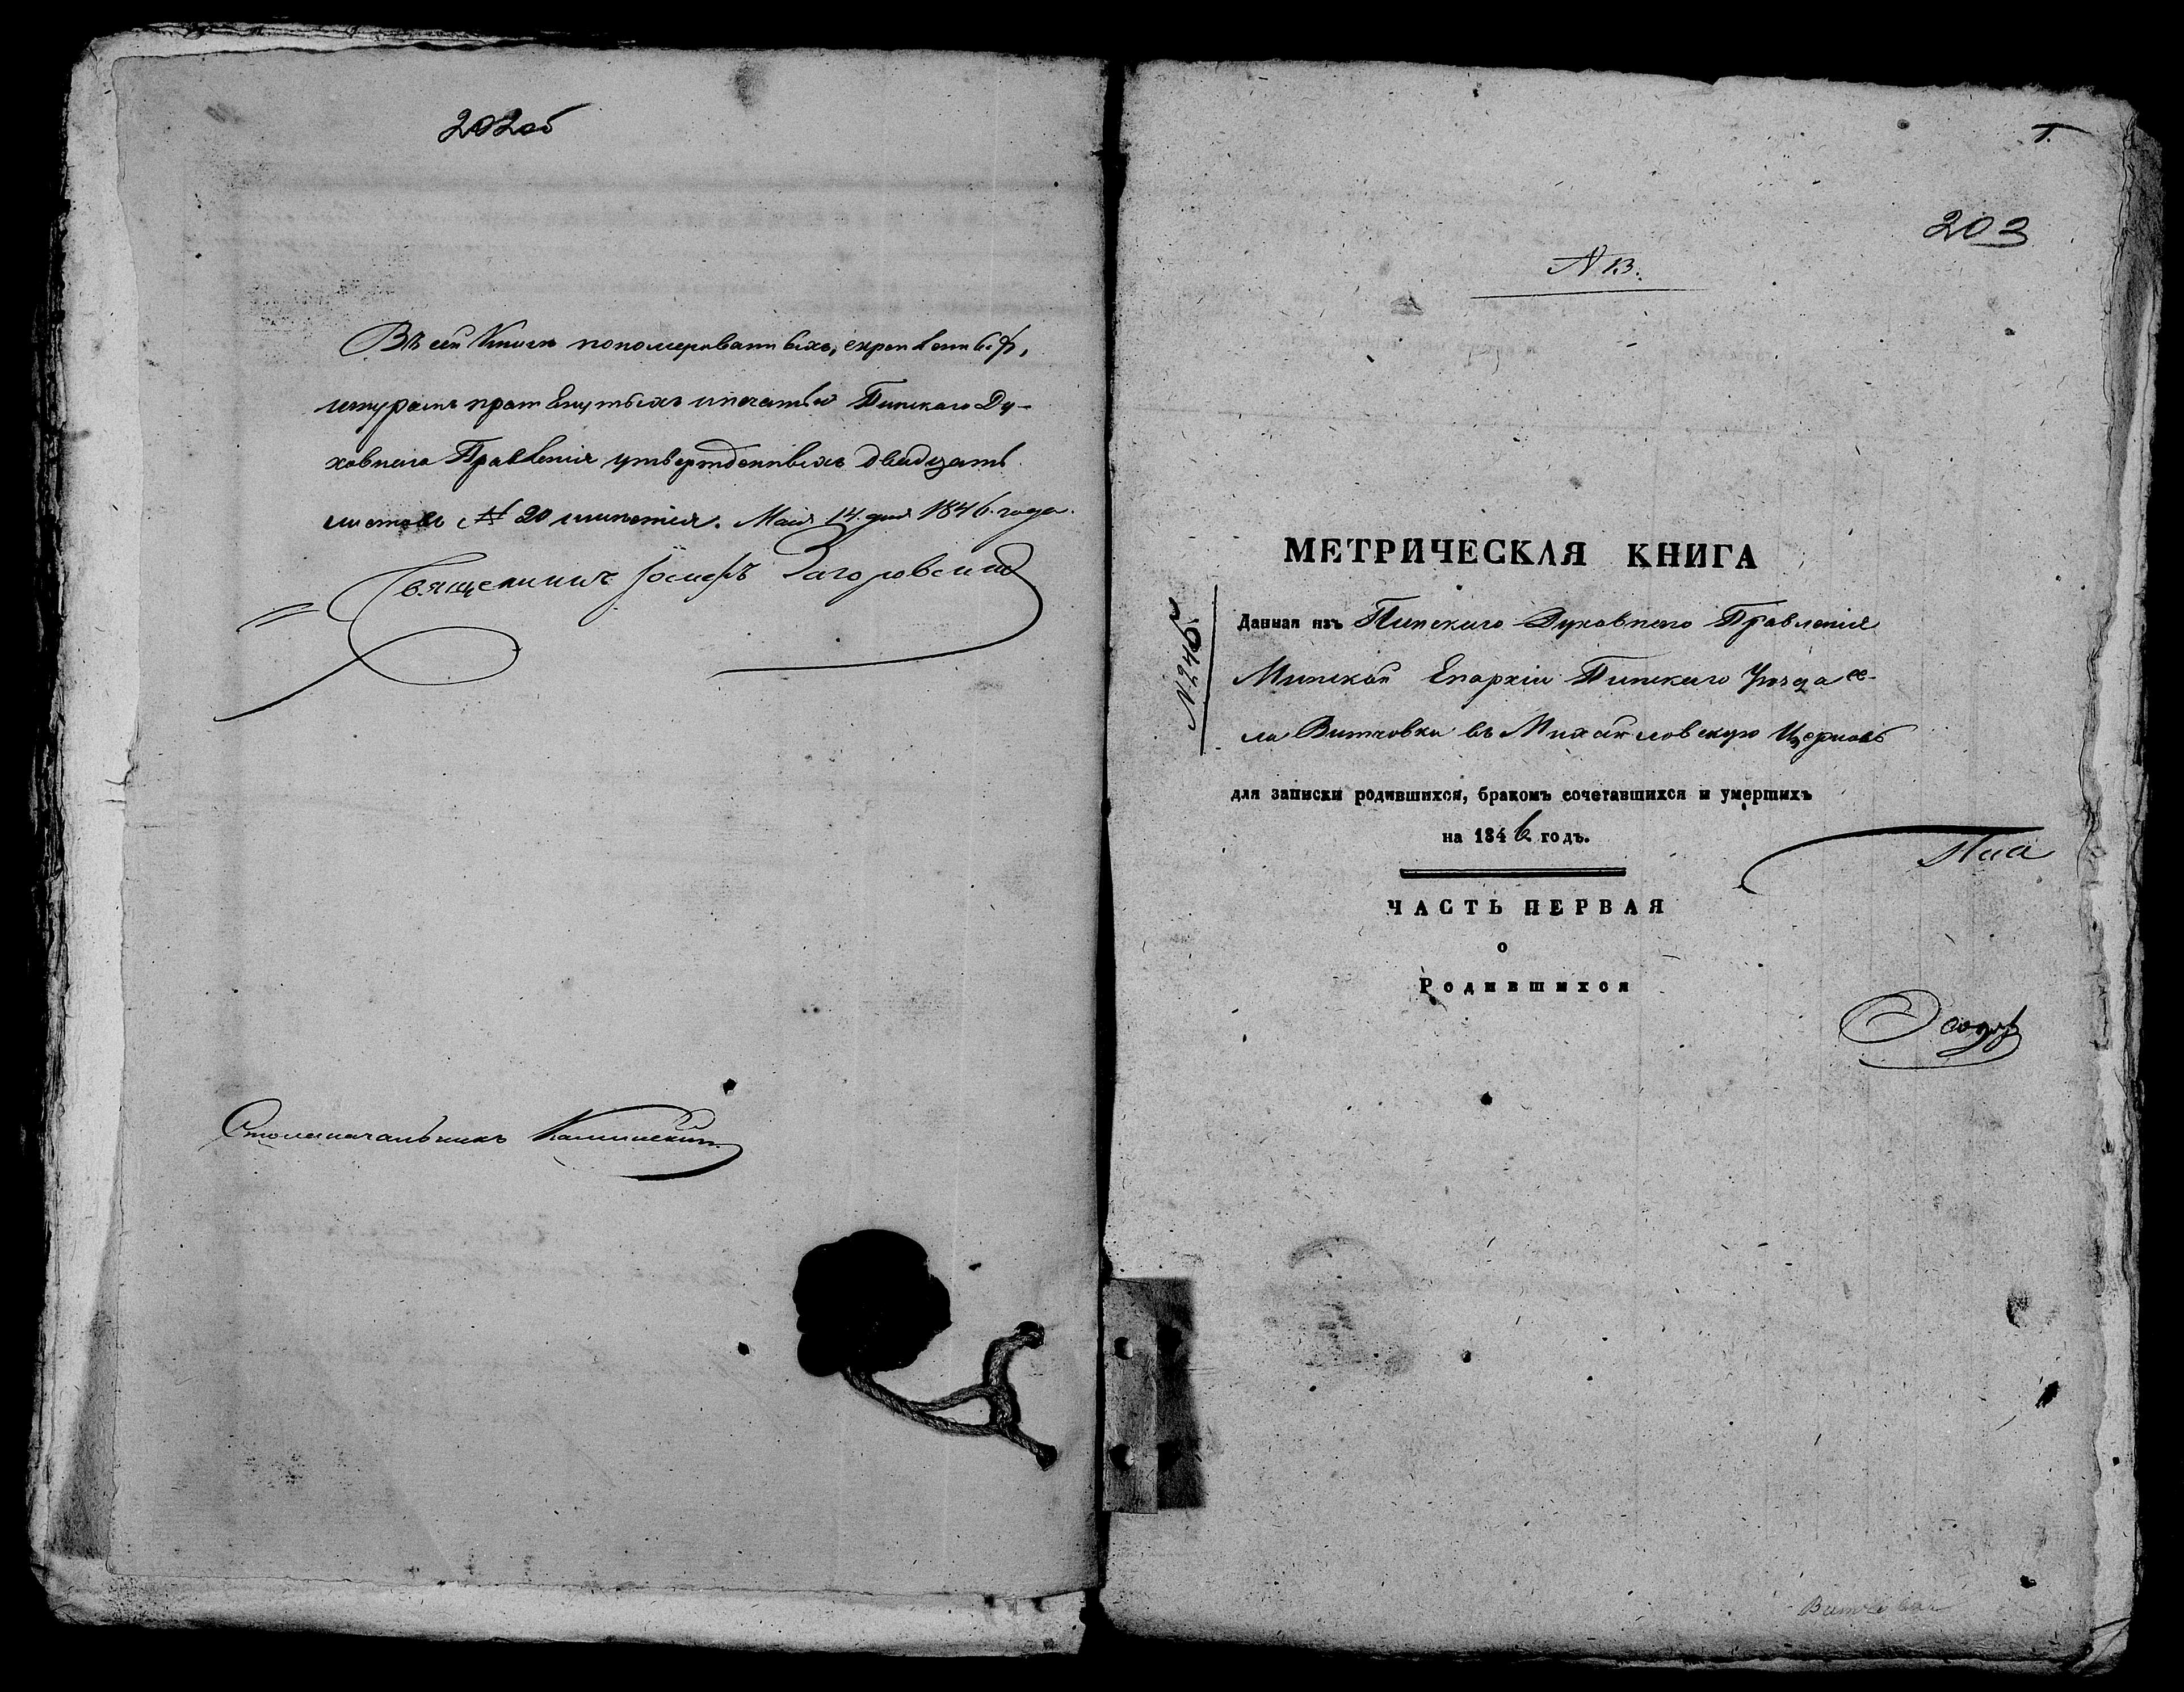 202об
Въ сей Книги пономерованныхъ, скрепленныхъ,
шнуромъ протянутыхъ и печатью Пинскаго Ду-
ховнаго Правленія утвержденныхъ двадцать
листовъ № 20 Маія 14 дня 1846 года.
Священникъ Іосифъ Загоровскій
Столоначальникъ Калинскій
1.
203
N 13.
МЕТРИЧЕСКАЯ КНИГА
N 246
Данная изъ Пинскаго Духовнаго Правленія
Минской Епархіи Пинскаго Уезда се-
ла Витчовки въ Михайловскую Церковь
для записки родившихся, бракомъ сочетавшихся и умершихъ
на 1846 годъ.
ЧАСТЬ ПЕРВАЯ
о
Родившихся